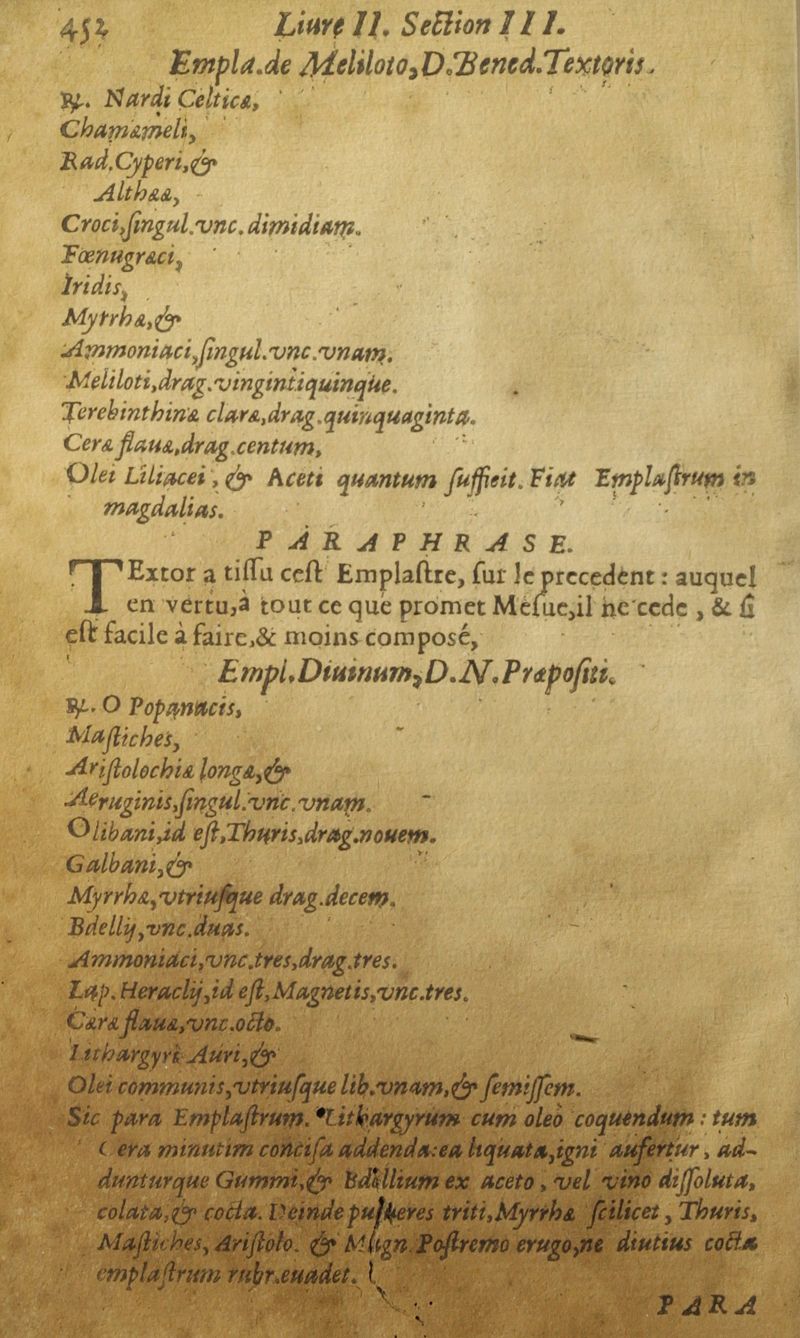 452 Liure II. Section III.
Empla.de Meliloto,D.Bened.Textoris.
℞. Nardi Celticæ,
Chamæmeli,
Rad.Cyperi,&
Althææ,
Croci,ſingul.vnc.dimidiam.
Fœnugræci,
Iridis,
Myrrhæ,&
Ammoniaci,ſingul.vnc.vnam.
Meliloti,drag.vingintiquinque.
Terebinthinæ claræ,drag.quinquaginta.
Ceræ flauæ,drag.centum,
Olei Liliacei, & Aceti quantum ſufficit. Fiat Emplaſtrum in
magdalias.
PARAPHRASE.
TExtor a tiſſu ceſt Emplaſtre, ſur le precedent : auquel
en vertu,à tout ce que promet Meſue,il ne cede , & ſi
eſt facile à faire,& moins composé,
Empl.Diuinum,D.N.Præpoſiti.
℞. O Popanacis,
Maſtiches,
Ariſtolochiæ longæ,&
Aeruginis,ſingul.vnc.vnam.
Olibani,id eſt,Thuris,drag.nouem.
Galbani,&
Myrrhæ,vtriuſque drag.decem.
Bdellij,vnc.duas.
Ammoniaci,vnc.tres,drag.tres.
Lap.Heraclij,id eſt,Magnetis,vnc.tres.
Cæræ flauæ,vnc.octo.
Lithargyri Auri,&
Olei communis,vtriuſque lib.vnam,& ſemiſſem.
Sic para Emplaſtrum. Lithargyrum cum oleo coquendum : tum
Cera minutim conciſa addenda:ea liquata,igni aufertur, ad-
dunturque Gummi,& Bdellium ex aceto, vel vino diſſoluta,
colata,& cocta. Deinde pulueres triti,Myrrhæ ſcilicet, Thuris,
Maſtiches, Ariſtolo. & Magn.Poſtremo erugo,ne diutius cocta
emplaſtrum rubr.euadet.
PARA